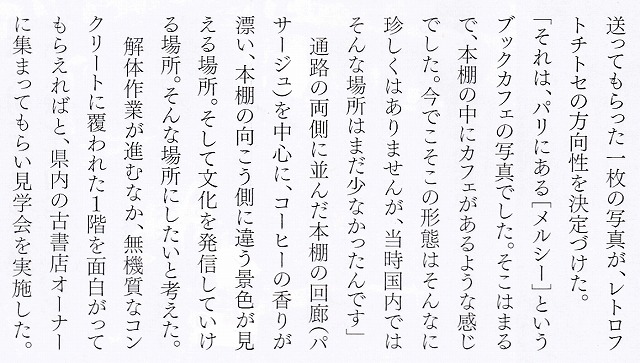 送ってもらった一枚の写真が、レトロフ
トチトセの方向性を決定づけた。
「それは、パリにある［メルシー］という
ブックカフェの写真でした。そこはまる
で、本棚の中にカフェがあるような感じ
でした。今でこそこの形態はそんなに
珍しくはありませんが、当時国内では
そんな場所はまだ少なかったんです」
通路の両側に並んだ本棚の回廊（パ
サージュ）を中心に、コーヒーの香りが
漂い、本棚の向こう側に違う景色が見
える場所。そして文化を発信していけ
る場所。そんな場所にしたいと考えた。
解体作業が進むなか、無機質なコン
クリートに覆われた1階を面白がって
もらえればと、県内の古書店オーナー
に集まってもらい見学会を実施した。